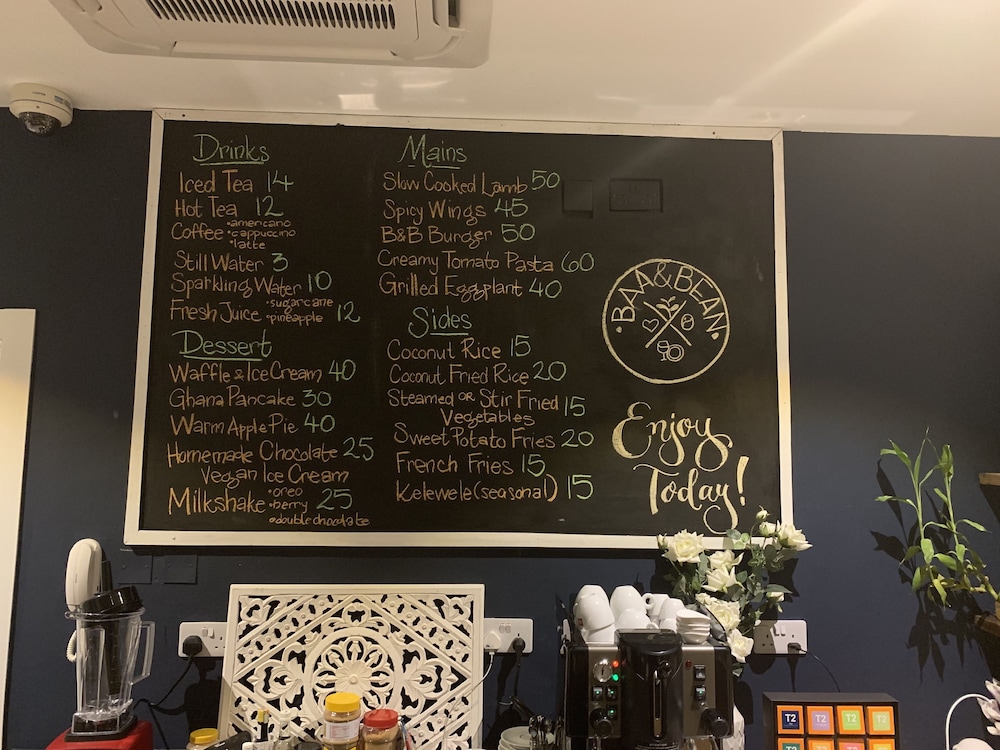 Drinks
Iced Tea 14
Hot Tea 12
Coffee •americano
•cappuccino
•latte
Still Water 3
Sparkling Water 10
Fresh Juice •sugarcane
•pineapple 12
Dessert
Waffle & Ice Cream 40
Ghana Pancake 30
Warm Apple Pie 40
Homemade Chocolate 25
Vegan Ice Cream
Milkshake •oreo
•berry 25
•double chocolate
Mains
Slow Cooked Lamb 50
Spicy Wings 45
B&B Burger 50
Creamy Tomato Pasta 60
Grilled Eggplant 40
Sides
Coconut Rice 15
Coconut Fried Rice 20
Steamed OR Stir Fried 15
Vegetables
Sweet Potato Fries 20
French Fries 15
Kelewele (seasonal) 15
•BAA&BEAN•
Enjoy
Today!
T2 T2 T2 T2